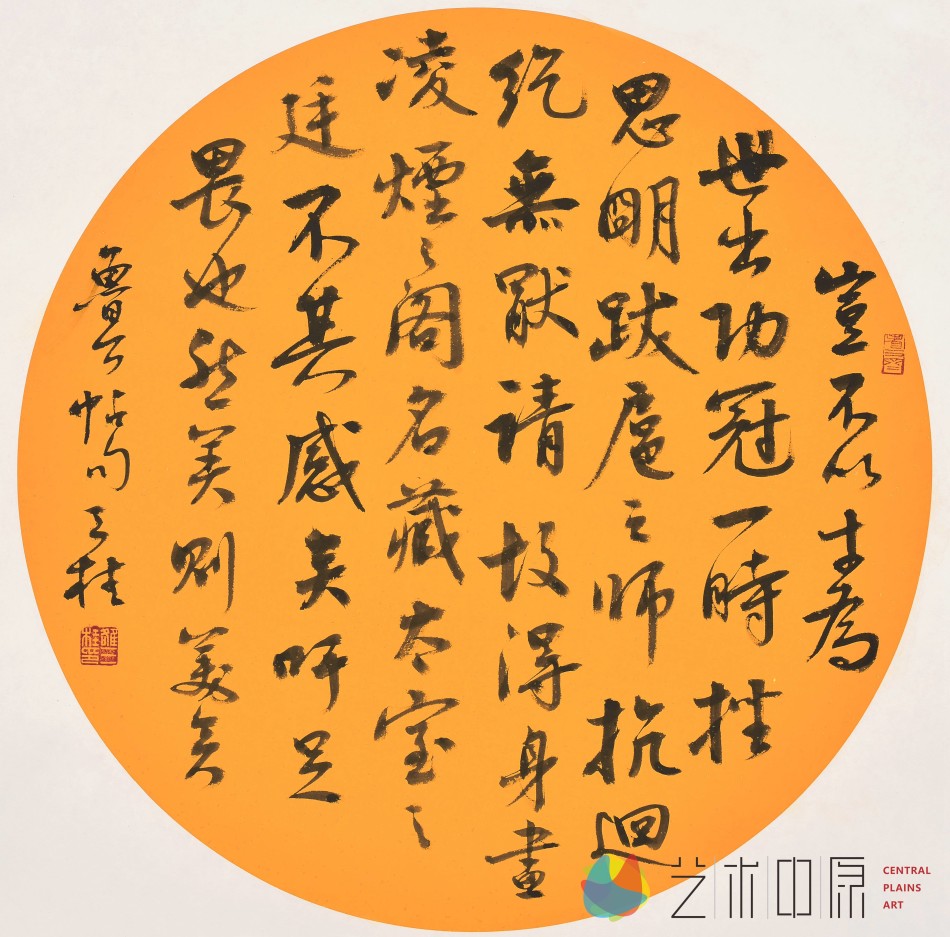 豈不以才為
世出功冠一時挫
思明跋扈之師抗迴
紇無厭請故得身畫
凌煙之閣名藏太室之
廷不其感矣吁足
畏也然美則美矣
魯公帖句三桂
雒三桂印
艺术中原
CENTRAL
PLAINS
ART